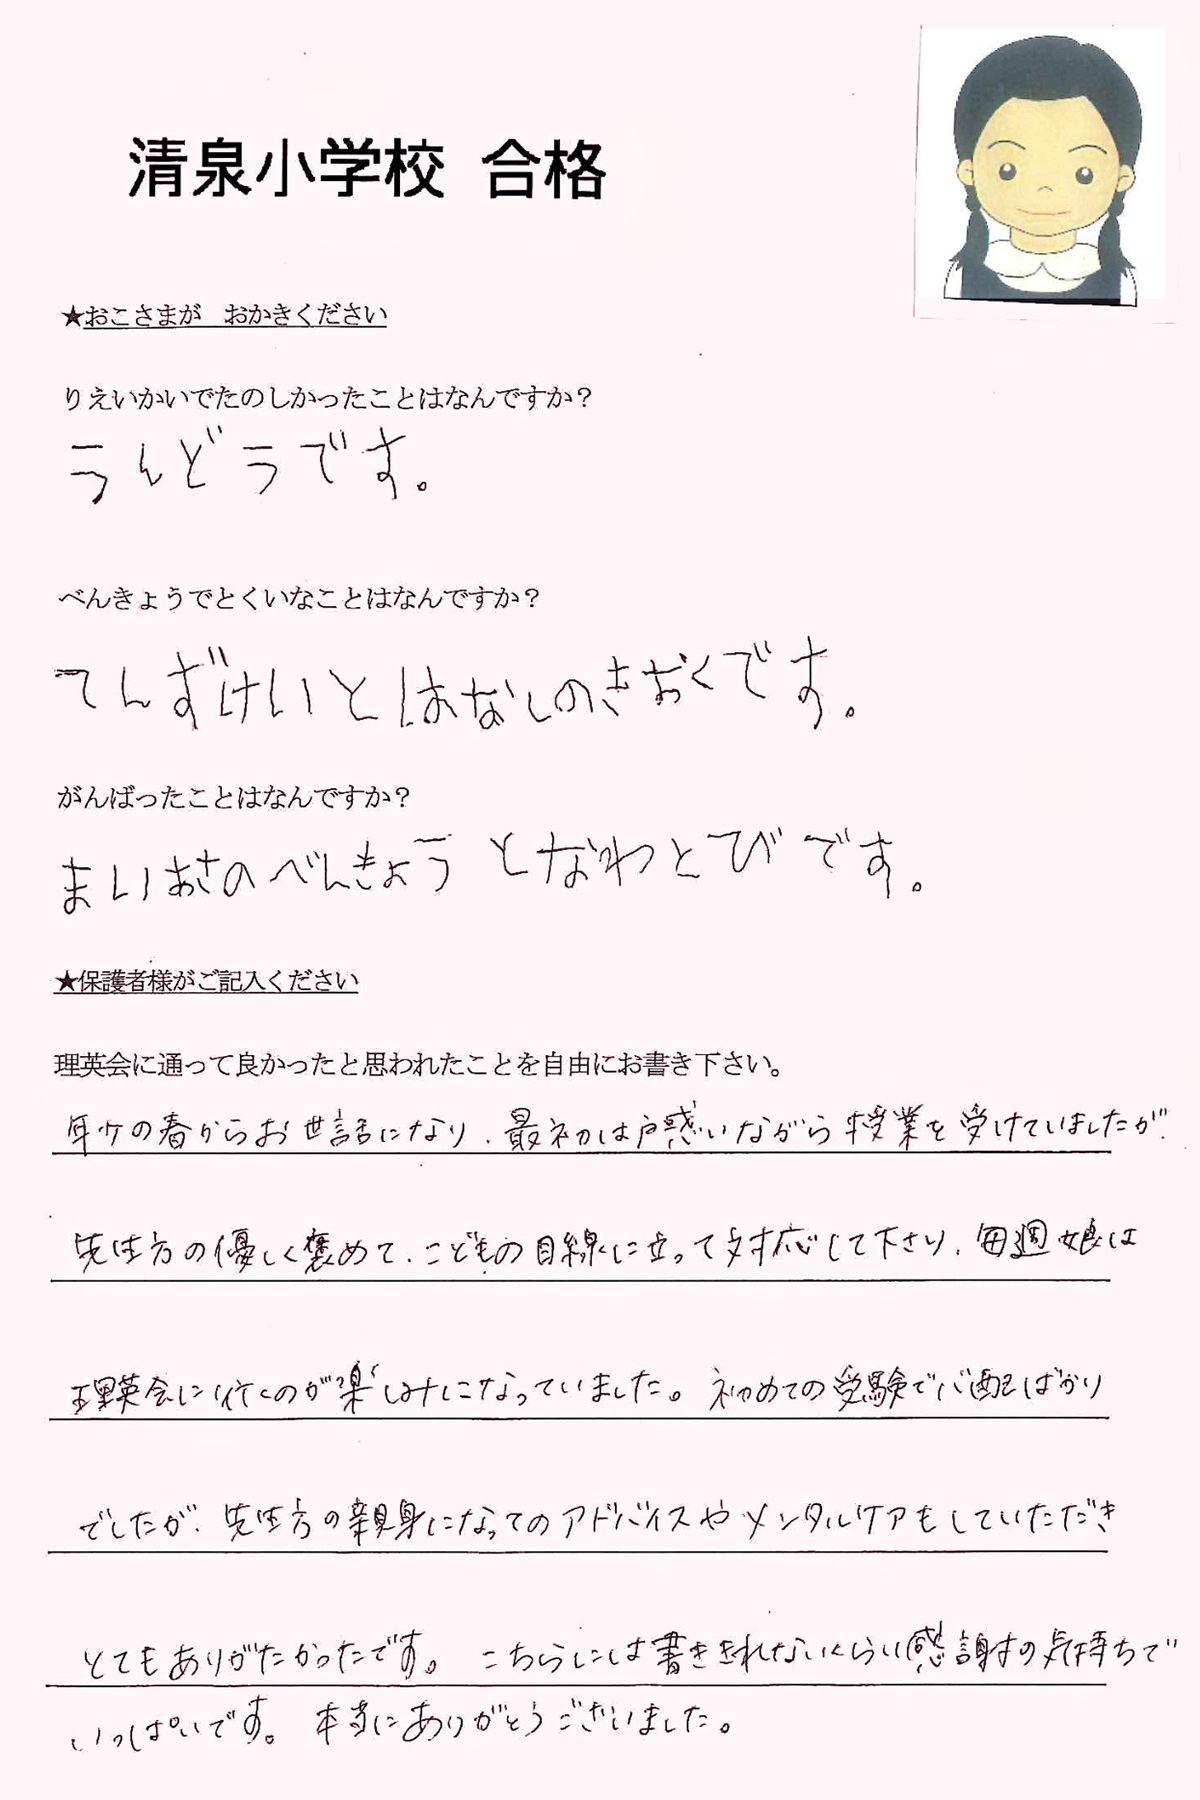 清泉小学校 合格
★おこさまが おかきください
りえいかいでたのしかったことはなんですか？
うんどうです。
べんきょうでとくいなことはなんですか？
てんずけいとはなしのきおくです。
がんばったことはなんですか？
まいあさのべんきょうとなわとびです。
★保護者様がご記入ください
理英会に通って良かったと思われたことを自由にお書き下さい。
年中の春からお世話になり、最初は戸惑いながら授業を受けていましたが、
先生方の優しく褒めて、こどもの目線に立って対応して下さり、毎週娘は
理英会に行くのが楽しみになっていました。初めての受験で心配ばかり
でしたが、先生方の親身になってのアドバイスやメンタルケアもしていただき
とてもありがたかったです。こちらには書ききれないくらい感謝の気持ちで
いっぱいです。本当にありがとうございました。